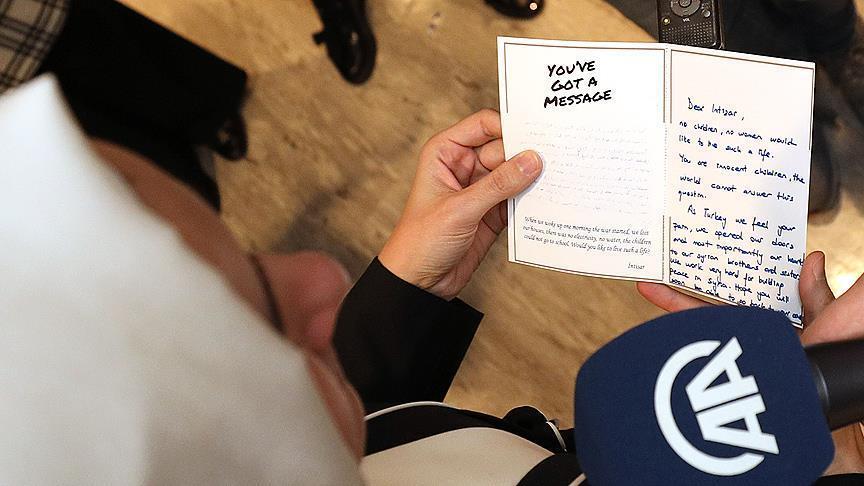 YOU'VE
GOT A
MESSAGE
When we woke up one morning the war started, we lost
our houses, there was no electricity, no water, the children
could not go to school. Would you like to live such a life?
Intisar
Dear Intisar,
no children, no women would
like to live such a life.
You are innocent children, the
world cannot answer this
question.
As Turkey we feel your
pain, we opened our doors
and most importantly our hearts
to our syrian brothers and sisters
We work very hard for building
peace in Syria. Hope you will
soon be able to go back to your
AA
VOL